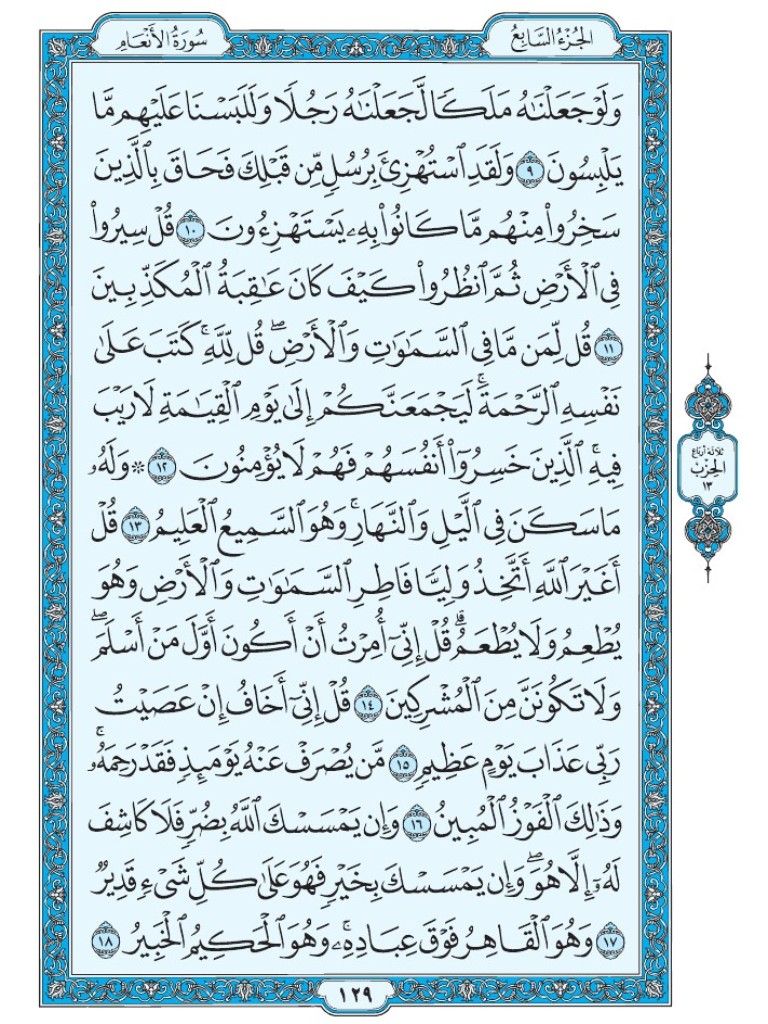 الجزء السابع
سورة الأنعام
وَلَوْ جَعَلْنَٰهُ مَلَكًا لَّجَعَلْنَٰهُ رَجُلًا وَلَلَبَسْنَا عَلَيْهِم مَّا
يَلْبِسُونَ ٩ وَلَقَدِ ٱسْتُهْزِئَ بِرُسُلٍ مِّن قَبْلِكَ فَحَاقَ بِٱلَّذِينَ
سَخِرُوا۟ مِنْهُم مَّا كَانُوا۟ بِهِۦ يَسْتَهْزِءُونَ ١٠ قُلْ سِيرُوا۟
فِى ٱلْأَرْضِ ثُمَّ ٱنظُرُوا۟ كَيْفَ كَانَ عَٰقِبَةُ ٱلْمُكَذِّبِينَ
١١ قُل لِّمَن مَّا فِى ٱلسَّمَٰوَٰتِ وَٱلْأَرْضِ ۖ قُل لِّلَّهِ ۚ كَتَبَ عَلَىٰ
نَفْسِهِ ٱلرَّحْمَةَ ۚ لَيَجْمَعَنَّكُمْ إِلَىٰ يَوْمِ ٱلْقِيَٰمَةِ لَا رَيْبَ
فِيهِ ۚ ٱلَّذِينَ خَسِرُوٓا۟ أَنفُسَهُمْ فَهُمْ لَا يُؤْمِنُونَ ١٢ ۞ وَلَهُۥ
مَا سَكَنَ فِى ٱلَّيْلِ وَٱلنَّهَارِ ۚ وَهُوَ ٱلسَّمِيعُ ٱلْعَلِيمُ ١٣ قُلْ
أَغَيْرَ ٱللَّهِ أَتَّخِذُ وَلِيًّا فَاطِرِ ٱلسَّمَٰوَٰتِ وَٱلْأَرْضِ وَهُوَ
يُطْعِمُ وَلَا يُطْعَمُ ۗ قُلْ إِنِّىٓ أُمِرْتُ أَنْ أَكُونَ أَوَّلَ مَنْ أَسْلَمَ ۖ
وَلَا تَكُونَنَّ مِنَ ٱلْمُشْرِكِينَ ١٤ قُلْ إِنِّىٓ أَخَافُ إِنْ عَصَيْتُ
رَبِّى عَذَابَ يَوْمٍ عَظِيمٍ ١٥ مَّن يُصْرَفْ عَنْهُ يَوْمَئِذٍ فَقَدْ رَحِمَهُۥ ۚ
وَذَٰلِكَ ٱلْفَوْزُ ٱلْمُبِينُ ١٦ وَإِن يَمْسَسْكَ ٱللَّهُ بِضُرٍّ فَلَا كَاشِفَ
لَهُۥٓ إِلَّا هُوَ ۖ وَإِن يَمْسَسْكَ بِخَيْرٍ فَهُوَ عَلَىٰ كُلِّ شَىْءٍ قَدِيرٌ
١٧ وَهُوَ ٱلْقَاهِرُ فَوْقَ عِبَادِهِۦ ۚ وَهُوَ ٱلْحَكِيمُ ٱلْخَبِيرُ ١٨
ثلاثة أرباع
الحزب
١٣
١٢٩